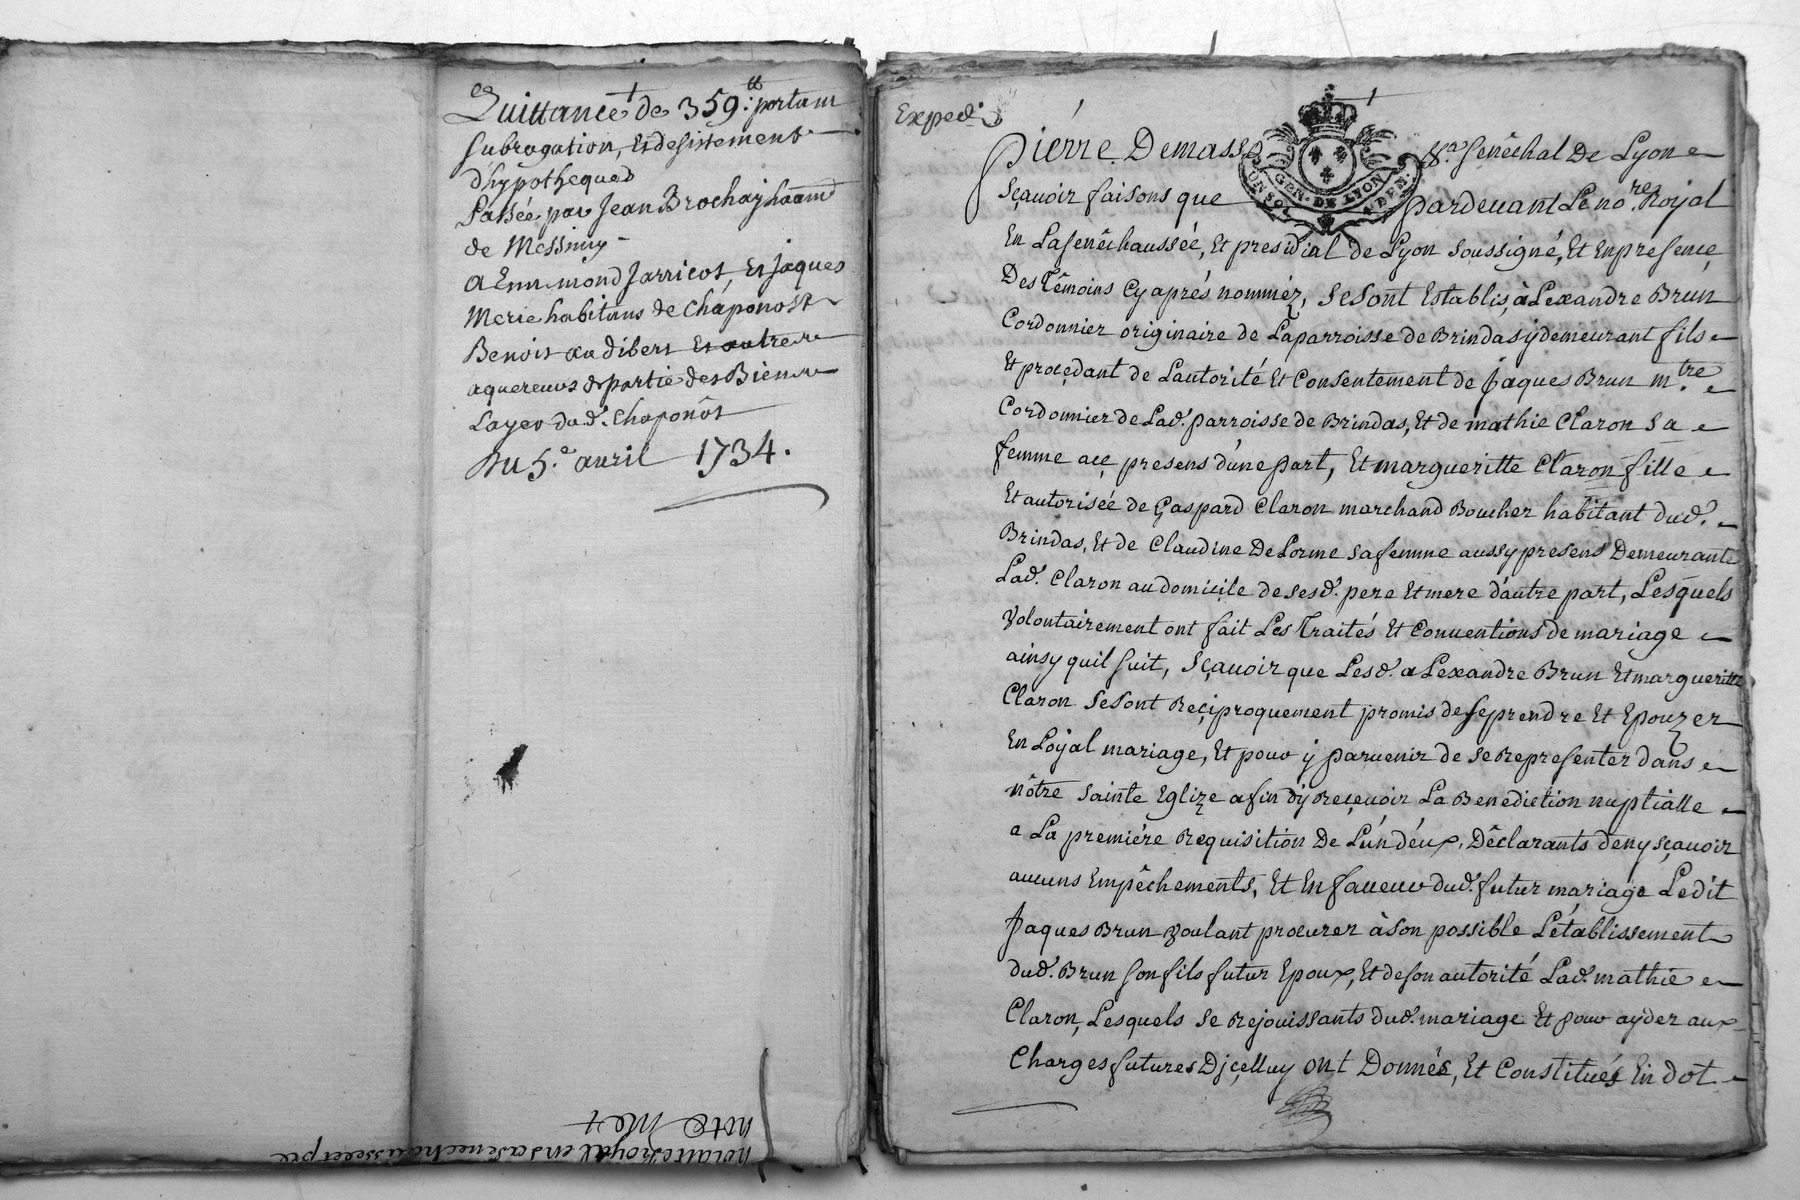 Quittance de 359.tt portant
subrogation, et desistement
d'hypotheques
Passée par Jean Brochay hant
de Messimy
a Ennemond Jarricot, et Jaques
Merie habitans de Chaponost
Benoit audibert et autre
aquereurs de partie des Biens
Layer dud. Chaponôst
Du 5.e avril 1734.
notaire Royal en sa senechaussée et pre
note
Exped.
Pierre Demasso Sénéchal De Lyon
sçavoir faisons que pardevant Le no.re Royal
GEN. DE LYON
UN SOL
En La senêchaussée, Et presidial de Lyon soussigné, Et En presence
Des Têmoins Cyaprés nommez, se sont Establis, aLexandre Brun
Cordonnier originaire de La parroisse de Brindas ÿ demeurant fils
Et proçedant de L'autorité Et Consentement de Jaques Brun m.tre
Cordonnier de Lad. parroisse de Brindas, Et de mathie Claron sa
femme açe presens d'une part, Et margueritte Claron fille
Et autorisée de Gaspard Claron marchand Boucher habitant dud.
Brindas, Et de Claudine De Lorme sa femme aussy presens Demeurante
Lad. Claron au domicile de sesd. pere Et mere d'autre part, Lesquels
Volontairement ont fait Les Traités Et Conventions de mariage
ainsy quil suit, sçavoir que Lesd. aLexandre Brun Et margueritte
Claron se sont Reçiproquement promis de se prendre Et Epouzer
En Loÿal mariage, Et pour ÿ parvenir de se Representer dans
nôtre sainte Eglize afin dÿ Reçevoir La Benediction nuptialle
a La premiére Requisition De L'un déux, Dêclarants deny sçavoir
aucuns Empêchements, Et En faveur dud. futur mariage Ledit
Jaques Brun Voulant procurer à son possible L'établissement
dud. Brun son fils futur Epoux, Et de son autorité Lad. mathie
Claron, Lesquels se Rejouissants dud. mariage Et pour ayder aux
Charges futures Djçelluy ont Donnés, Et Constitués En dot